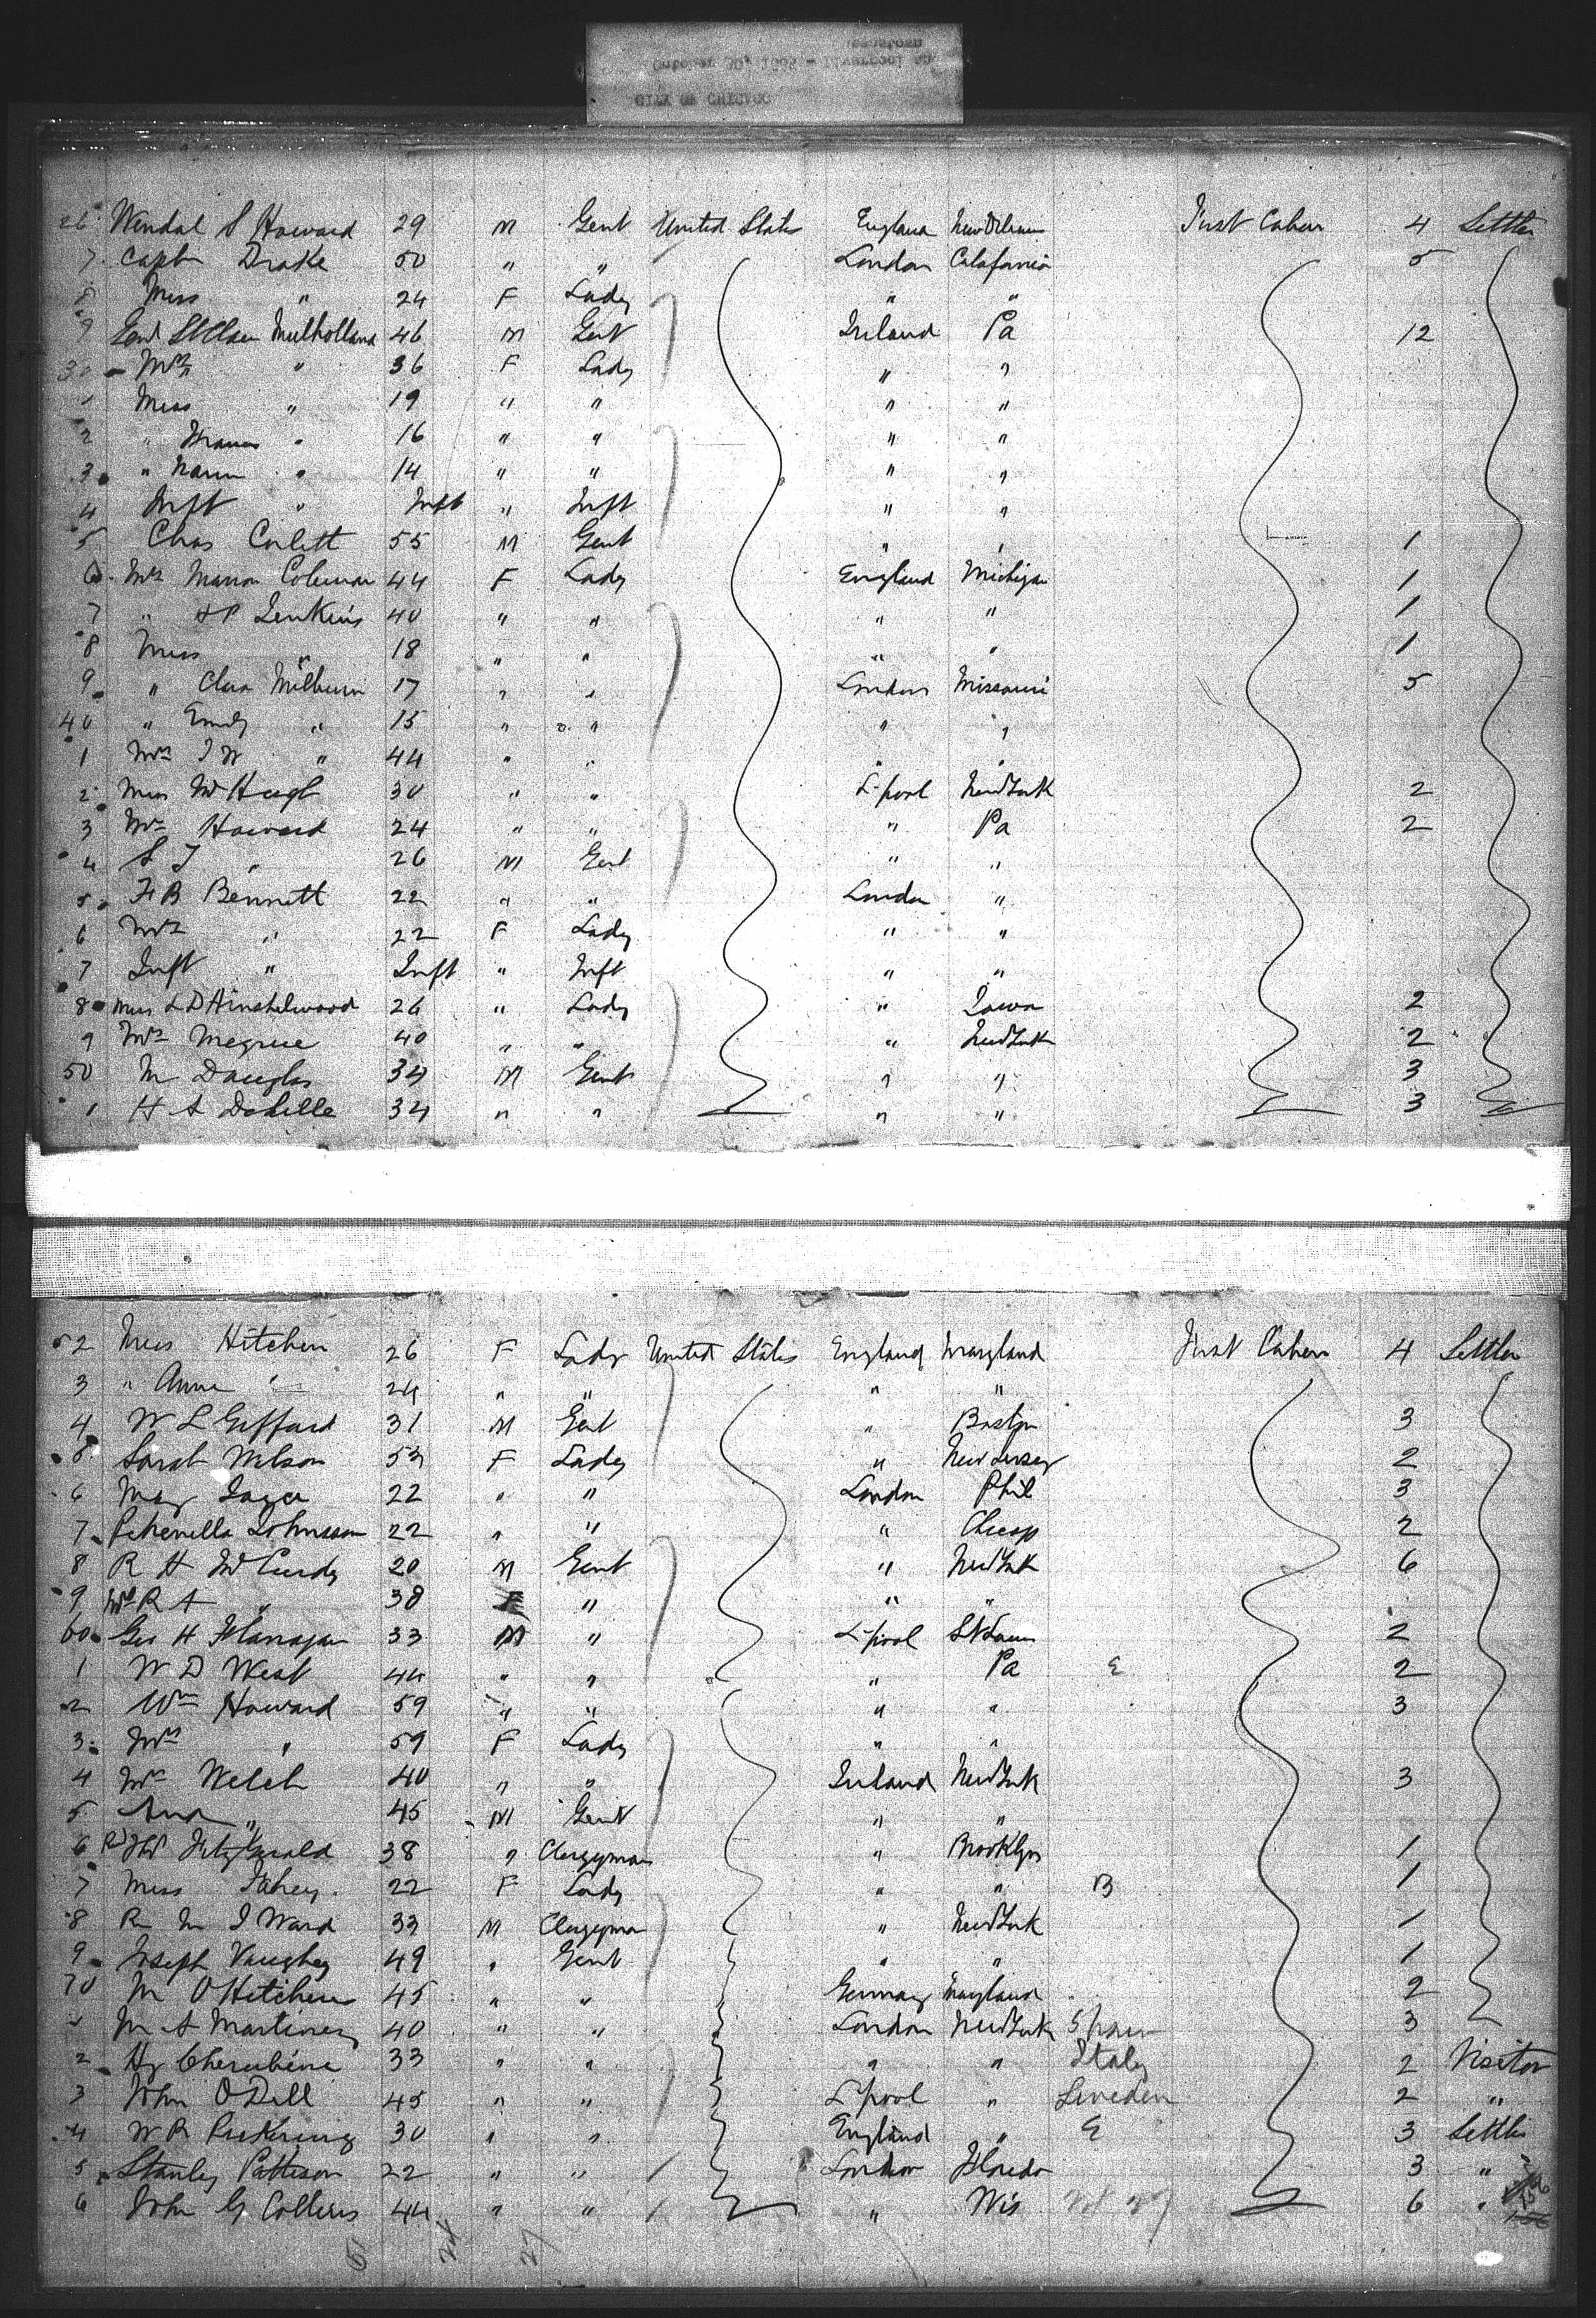 CITY OF CHICAGO
October 30, - Liverpool
26 Wendal S Howard 29 M Gent United States England New Orleans First Cabin 4 Settler
7 Capt Drake 50 " " London Calafornia 5
8 Miss " 24 F Lady " "
9 Mulholland 46 M Gent Ireland Pa 12
30 Mrs " 36 F Lady " "
1 Miss " 19 " " " "
2 " " 16 " " " "
3 " " 14 " " " "
4 Inft " Inft " Inft " "
5 Chas Corlett 55 M Gent " " 1
6 Mrs Marion Coleman 44 F Lady England Michigan 1
7 " Jenkins 40 " " " " 1
8 Miss " 18 " " " " 1
9 " Clara Milburn 17 " " London Missouri 5
40 " Emily " 15 " " " "
1 Mrs J W " 44 " " " "
2 Miss McHugh 30 " " L'pool New York 2
3 Mrs Howard 24 " " " Pa 2
4 S J " 26 M Gent " "
5 F B Bennett 22 " " London "
6 Mrs " 22 F Lady " "
7 Inft " Inft " Inft " "
8 Miss L D Ainshelwood 26 " Lady " Iowa 2
9 Mrs Megrue 40 " " " New York 2
50 M Douglas 34 M Gent " " 3
1 H A Dobelle 34 " " " " 3
52 Miss Hitchen 26 F Lady United States England Maryland First Cabin 4 Settler
3 " Anna " 24 " " " "
4 W L Giffard 31 M Gent " Boston 3
5 Sarah Wilson 53 F Lady " New Jersey 2
6 May 22 " " London Phil 3
7 Petrenella Johnsson 22 " " " Chicago 2
8 R H McCurdy 20 M Gent " New York 6
9 Mrs R A " 38 F " " "
60 Geo H Flanagan 33 M " L'pool St Louis 2
1 W D West 44 " " " Pa E 2
2 Wm Howard 59 " " " " 3
3 Mrs " 59 F Lady " "
4 Mrs Welch 40 " " Ireland New York 3
5 And " 45 M Gent " "
6 Rd FitzGerald 38 " Clergyman " Brooklyn 1
7 Miss Fahey 22 F Lady " " B 1
8 R M J Ward 33 M Clergyman " New York 1
9 Joseph Vaughey 49 " Gent " " 1
70 M O Hitchens 45 " " Germany Maryland 2
M A Martinez 40 " " London New York Spain 3
2 Hy Cherubini 33 " " " " Italy 2 Visitor
3 John O'Dell 45 " " L'pool " Sweden 2 "
4 W R Pickering 30 " " England " E 3 Settler
5 Stanley Patteson 22 " " London Florida 3 "
6 John G Collens 44 " " " Wis 6 "